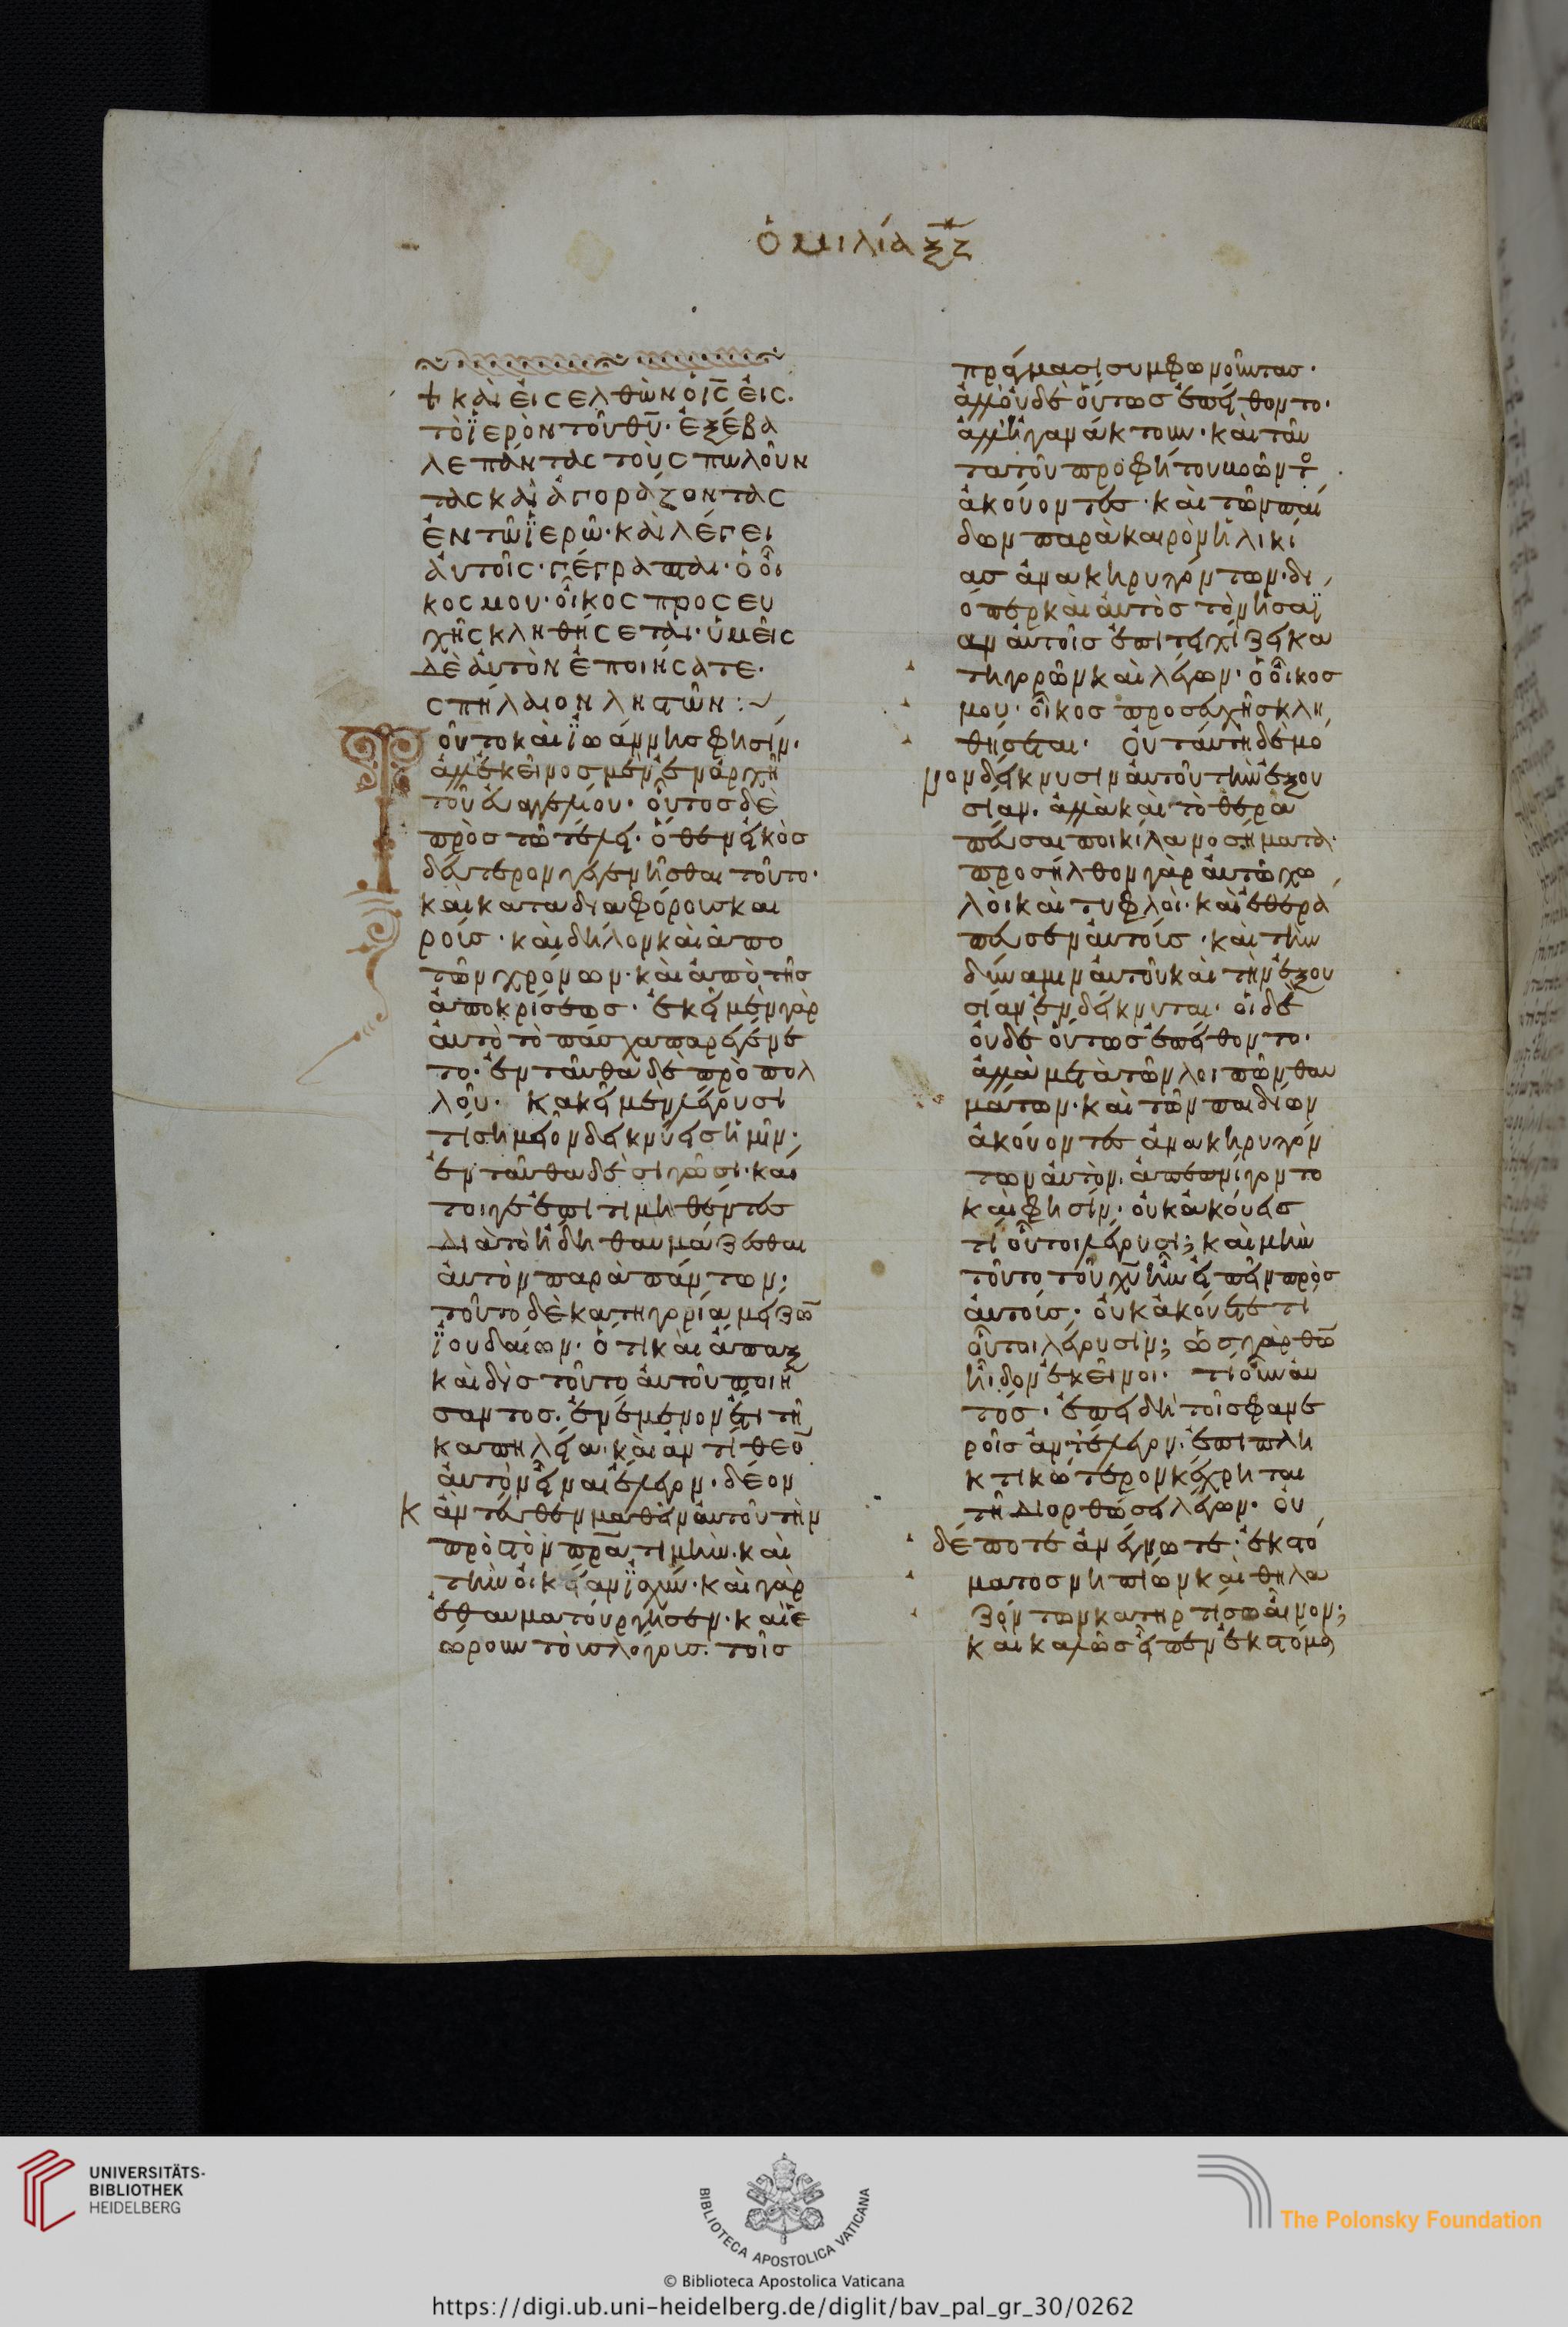 ὁμιλία ξζ
καὶ εἰσελθὼν ὁ ις εἰς
τὸ ϊερὸν τοῦ θυ· ἐξέβα
λε πάντας τοὺς πωλοῦν
τας καὶ ἀγοράζοντας
ἐν τῶ ϊερῶ· καὶ λέγει
αὐτοῖς· γέγραπται· ὁ οἶ
κος μου· οἶκος προσευ
χῆς κληθήσεται· ὑμεῖς
δὲ αὐτὸν ἐποιήσατε·
σπήλαιον ληστῶν :~
Τοῦτο καὶ ϊωάννης φησίν·
ἀλλ' ἐκεῖνος μὲν ἐν ἀρχῆ
τοῦ εὐαγγελίου· οὗτος δὲ
πρὸς τῶ τέλει· ὅθεν εἰκὸς
δεύτερον γεγενῆσθαι τοῦτο·
καὶ κατα διαφόρους και
ρούς· καὶ δῆλον καὶ ἀπο
τῶν χρόνων· καὶ ἀπὸ τῆς
ἀποκρίσεως· ἐκεῖ μὲν γὰρ
αὐτὸ τὸ πάσχα παρεγένε
το· ἐνταῦθα δὲ πρὸ πολ
λοῦ· κακεῖ μὲν λέγουσι
τί σημεῖον δεικνύεις ἡμῖν;
ἐνταῦθα δὲ σιγῶσι· καί
τοιγε ἐπιτιμηθέντες
διὰ τὸ ἤδη θαυμάζεσθαι
αὐτὸν παρὰ πάντων;
τοῦτο δὲ κατηγορία μείζω
ϊουδαίων· ὅτι καὶ ἅπαξ
καὶ δὶς τοῦτο αὐτοῦ ποιή
σαντος· ἐνέμενον ἔτι τῆ
καπηλεία· καὶ ἀντίθεον
αὐτὸν εἶναι ἔλεγον· δέον
κἀντεῦθεν μαθεῖν αὐτοῦ τὴν
πρὸς τὸν πρα τιμὴν· καὶ
τὴν οἰκείαν ϊσχύν· καὶ γὰρ
ἐθαυματούργησεν· καὶ ἑ
ώρουν τοὺς λόγους· τοῖς
πράγμασι συμφωνοῦντας·
ἀλλ' οὐδὲ οὕτως ἐπείθοντο·
ἀλλ' ἠγανάκτουν· καὶ ταῦ
τα τοῦ προφήτου βοῶντο
ἀκούοντες· καὶ τῶν παί
δων παρὰ καιρὸν ἡλικί
ας ἀνακηρυγόντων· δι
όπερ καὶ αὐτὸς τὸν ἡσαΐ
αν αὐτοῖς ἐπιτειχίζει κα
τηγορῶν καὶ λέγων· ὁ οἶκος
μου· οἶκος προσευχῆς κλη
θήσεται· οὐ ταύτη δὲ μό
νον δείκνυσιν αὐτοῦ τὴν ἐξου
σίαν· ἀλλὰ καὶ τὸ θερα
πεῦσαι ποικίλα νοσήματα·
προσῆλθον γὰρ αὐτῶ χω
λοὶ καὶ τυφλοὶ· καὶ ἐθερά
πευσεν αὐτούς· καὶ τὴν
δύναμιν αὐτοῦ καὶ τὴν ἐξου
σίαν ἐνδείκνυται· οἱ δὲ
οὐδὲ οὕτως ἐπείθοντο·
ἀλλὰ μετὰ τῶν λοιπῶν θαυ
μάτων· καὶ τῶν παιδίων
ἀκούοντες ἀνακηρυγόν
των αὐτὸν· ἀπεπνίγοντο
καὶ φησίν· οὐκ ἀκούεις
τί οὗτοι λέγουσι; καὶ μὴν
τοῦτο τοῦ χυ ἦν εἰπεῖν πρὸς
αὐτούς· οὐκ ἀκούετε τί
οὗτοι λέγουσίν; ὡς γὰρ θω
ἦιδον ἐκεῖνοι· τί οὖν αὐ
τός· ἐπειδὴ τοῖς φανε
ροῖς ἀντέλεγον· ἐπιπλη
κτικώτερον κέχρηται
τῆ διορθώσει λέγων· οὐ
δέποτε ἀνέγνωτε· ἐκ στό
ματος νηπίων καὶ θηλα
ζόντων κατηρτίσω αἶνον;
καὶ καλῶς εἶπεν ἐκ στόμα
UNIVERSITÄTS-
BIBLIOTHEK
HEIDELBERG
BIBLIOTECA APOSTOLICA VATICANA
The Polonsky Foundation
© Biblioteca Apostolica Vaticana
https://digi.ub.uni-heidelberg.de/diglit/bav_pal_gr_30/0262